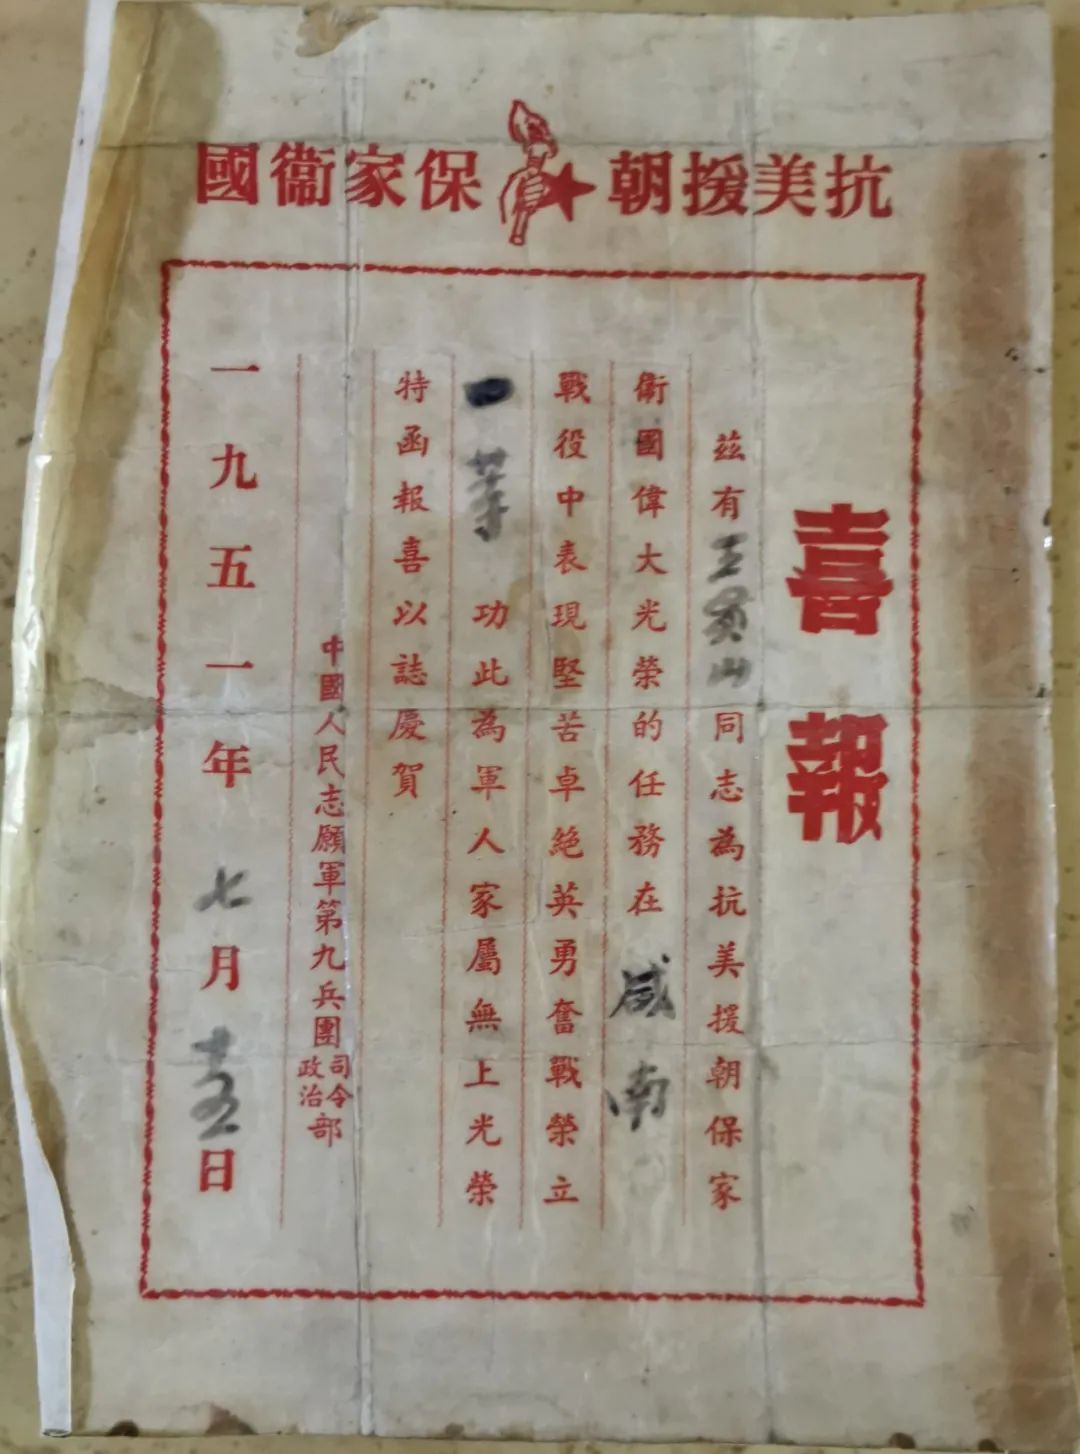 抗美援朝 保家衞國
喜報
茲有王貴山同志為抗美援朝保家
衛國偉大光榮的任務在咸南
戰役中表現堅苦卓絕英勇奮戰榮立
等功此為軍人家屬無上光榮
特函報喜以誌慶賀
中國人民志願軍第九兵團司令政治部
一九五一年七月十五日